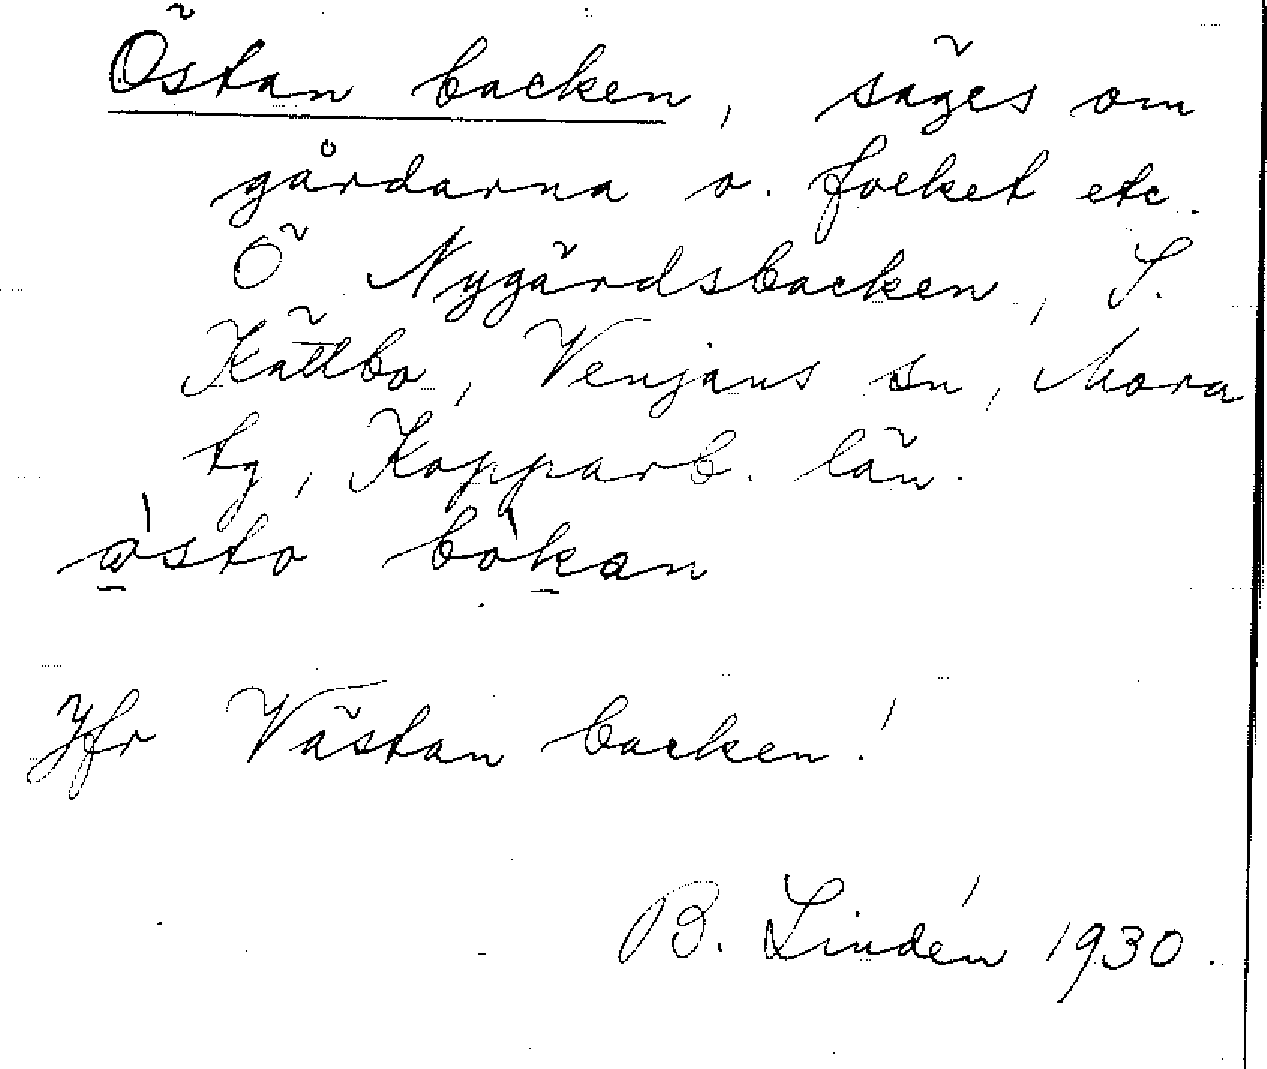 Östan backen, säges om
gårdarna o. folket etc.
Ö Nygårdsbacken, S.
Kättbo, Venjans sn, Mora
tg, Kopparb. län.
ǫ̀sto bòkan
Jfr Västan backen!
B. Lindén 1930.